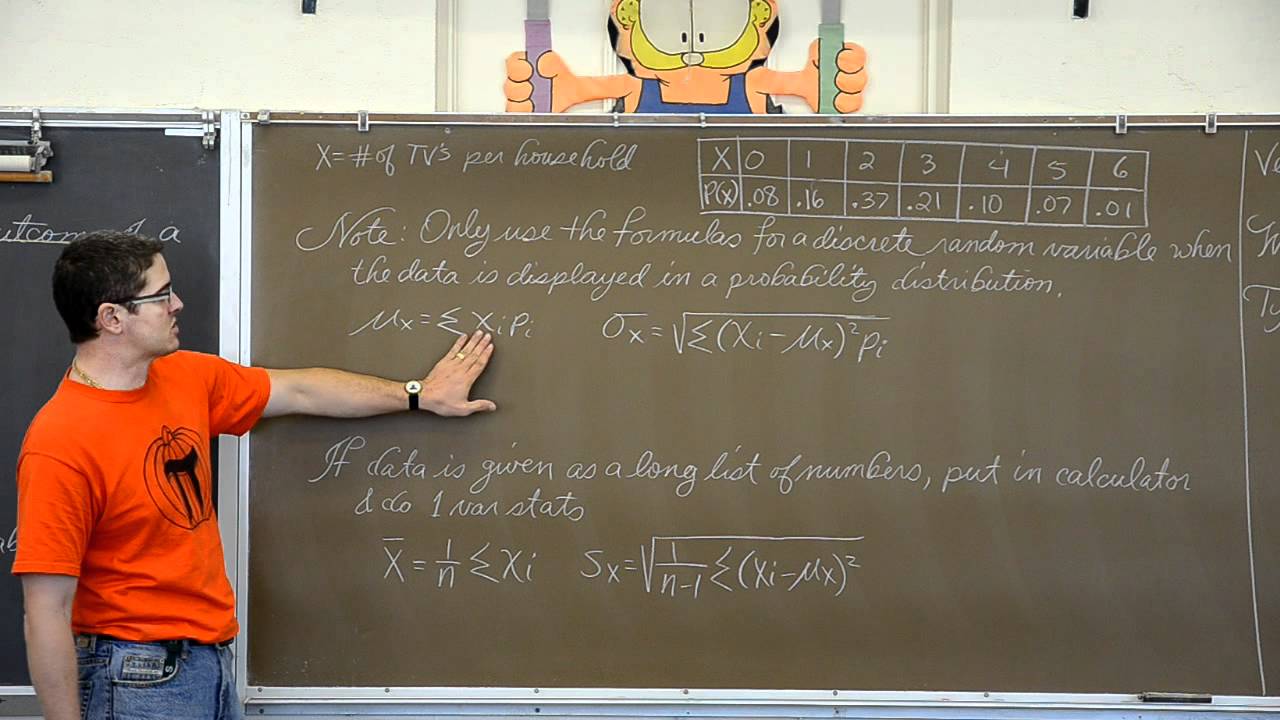 X = # of TV's per household
X 0 1 2 3 4 5 6
P(x) .08 .16 .37 .21 .10 .07 .01
Note: Only use the formulas for a discrete random variable when
the data is displayed in a probability distribution.
μx = Σ xi pi σx = √Σ(xi − μx)² pi
If data is given as a long list of numbers, put in calculator
& do 1 var stats
x̄ = 1/n Σ xi Sx = √1/(n−1) Σ(xi − μx)²
of a
π